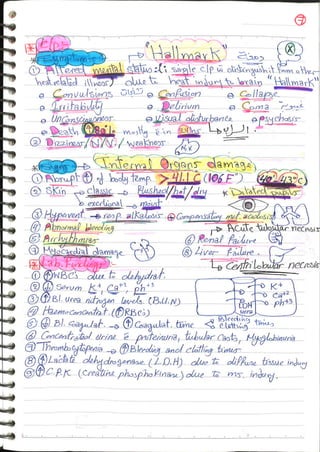 7
C/P
* Symptoms "Hallmark" X
① Altered mental status: (single c/p is distinguish it from other
heat related illness) due to heat injury to brain "Hallmark"
o Convulsions o Confusion o Collapse
o Irritability o Delirium o Coma
o Unconsciousness o visual disturbance o psychosis
o Death 80% mostly in
② Dizziness / N / V / weakness
* Signs Internal Organs damage
① Abrupt ↑ of body temp. > 41.1 C (106 F) (40-43°C)
② Skin classic → flushed / hot / dry * Dilated pupils
exertional → moist
③ Hypervent. → resp. alkalosis ⊕ Compensating met. acidosis
④ Abnormal bleeding → Acute tubular necrosis
⑤ Arrhythmias ⑥ Renal Failure
⑦ Myocardial damage ⑧ Liver Failure
→ Centrilobular necrosis
* Lab. Findings
① ↑ WBCs due to dehydrat.
② ↓ Serum K+, Ca+2, ph+3
③ ↑ Bl. urea nitrogen levels (B.U.N)
④ Haemoconcentrat. (↑ RBCs)
K+
Ca+2
ph+3
LDH
urea
⑤ ↓ Bl. coagulat. → ↑ Coagulat. time < Bleeding time
clotting
⑥ Concentrated urine & proteinuria, tubular casts, Myoglobinuria
⑦ Thrombocytopenia → ↑ Bleeding and clotting times
⑧ ↑ Lactate dehydrogenase (L.D.H) due to diffuse tissue injury
⑨ ↑ C.P.K (Creatine phosphokinase) due to ms. injury.